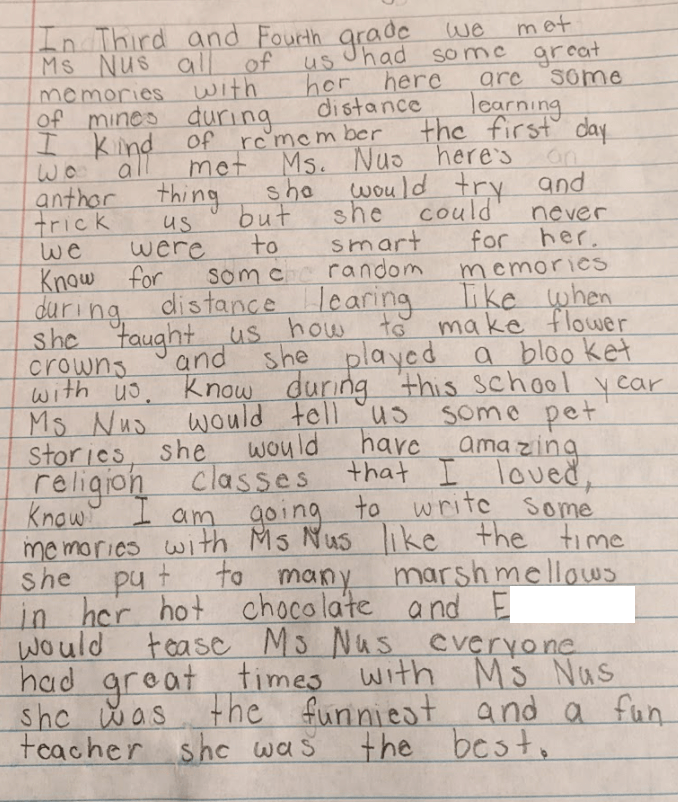 In Third and Fourth grade we met
Ms Nus all of us had some great
memories with her here are some
of mines during distance learning
I kind of remember the first day
we all met Ms. Nus here's an
anthor thing she would try and
trick us but she could never
we were to smart for her.
Know for some random memories
during distance learing like when
she taught us how to make flower
crowns and she played a blooket
with us. Know during this school year
Ms Nus would tell us some pet
stories, she would have amazing
religion classes that I loved,
Know I am going to write some
memories with Ms Nus like the time
she put to many marshmellows
in her hot chocolate and E
would tease Ms Nus everyone
had great times with Ms Nus
she was the funniest and a fun
teacher she was the best.